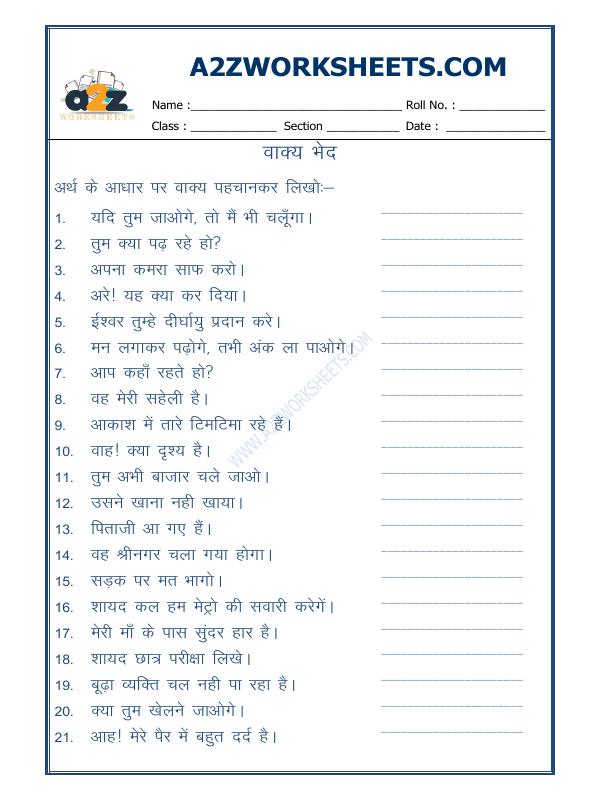 A2ZWORKSHEETS.COM
a2z
WORKSHEETS
Name :__________________________________ Roll No. : ______________
Class : ______________ Section ____________ Date : ________________
वाक्य भेद
अर्थ के आधार पर वाक्य पहचानकर लिखोः–
1. यदि तुम जाओगे, तो मैं भी चलूँगा।
2. तुम क्या पढ़ रहे हो?
3. अपना कमरा साफ करो।
4. अरे! यह क्या कर दिया।
5. ईश्वर तुम्हे दीर्घायु प्रदान करे।
6. मन लगाकर पढ़ोगे, तभी अंक ला पाओगे।
7. आप कहाँ रहते हो?
8. वह मेरी सहेली है।
9. आकाश में तारे टिमटिमा रहे हैं।
10. वाह! क्या दृश्य है।
11. तुम अभी बाजार चले जाओ।
12. उसने खाना नही खाया।
13. पिताजी आ गए हैं।
14. वह श्रीनगर चला गया होगा।
15. सड़क पर मत भागो।
16. शायद कल हम मेट्रो की सवारी करेगें।
17. मेरी माँ के पास सुंदर हार है।
18. शायद छात्र परीक्षा लिखे।
19. बूढ़ा व्यक्ति चल नही पा रहा है।
20. क्या तुम खेलने जाओगे।
21. आह! मेरे पैर में बहुत दर्द है।
WWW.A2ZWORKSHEETS.COM